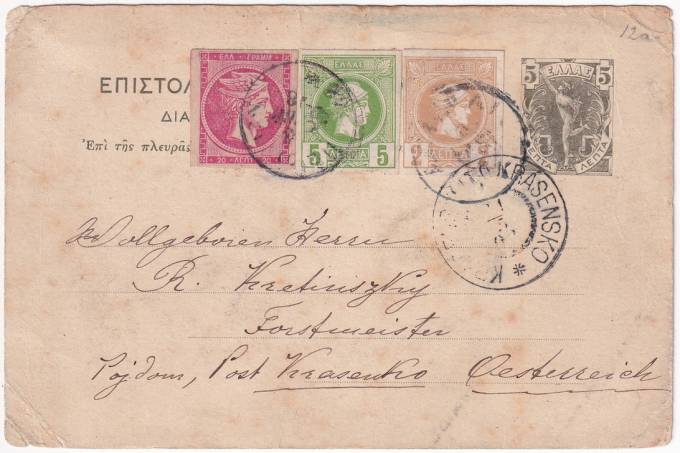 12a
ΕΠΙΣΤΟΛ
ΔΙΑ
Ἐπὶ τῆς πλευρᾶς
ΕΛΛ ΓΡΑΜΜ
20 ΛΕΠΤΑ 20
ΕΛΛΑΣ
5 ΛΕΠΤΑ 5
ΕΛΛΑΣ
2 ΛΕΠΤΑ 2
5 ΕΛΛΑΣ 5
ΛΕΠΤΑ ΛΕΠΤΑ
KRASENSKO
Wollgeboren Herrn
R.
Forstmeister
Pojdom, Post Krasenko Oesterreich